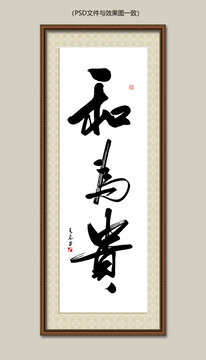 （PSD文件与效果图一致）
和为贵